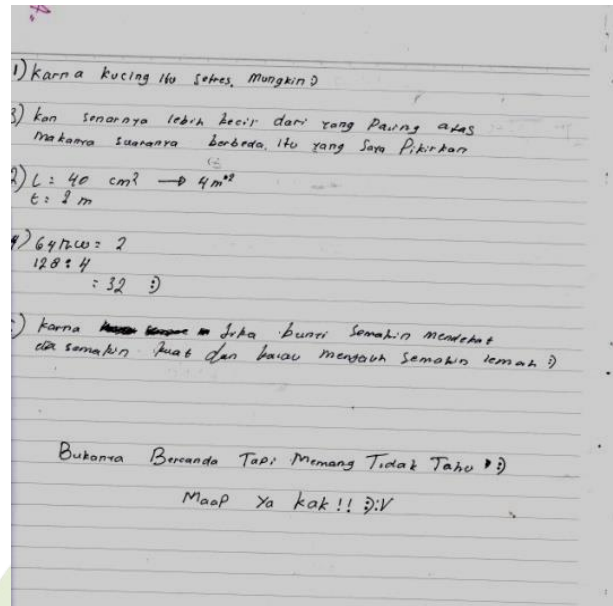 1) Karna kucing itu setres. Mungkin :)
3) kan senarnya lebih kecil dari yang Paling atas
makanya suaranya berbeda. itu yang Saya Pikirkan
2) L = 40 cm² → 4 m²
t = 2 m
4) 64
128 : 4
= 32 :)
) karna Jika bunyi Semakin mendekat
dia semakin kuat dan kalau menjauh Semakin lemah :)
Bukanya Bercanda Tapi Memang Tidak Tahu :)
Maap Ya kak!! :):V